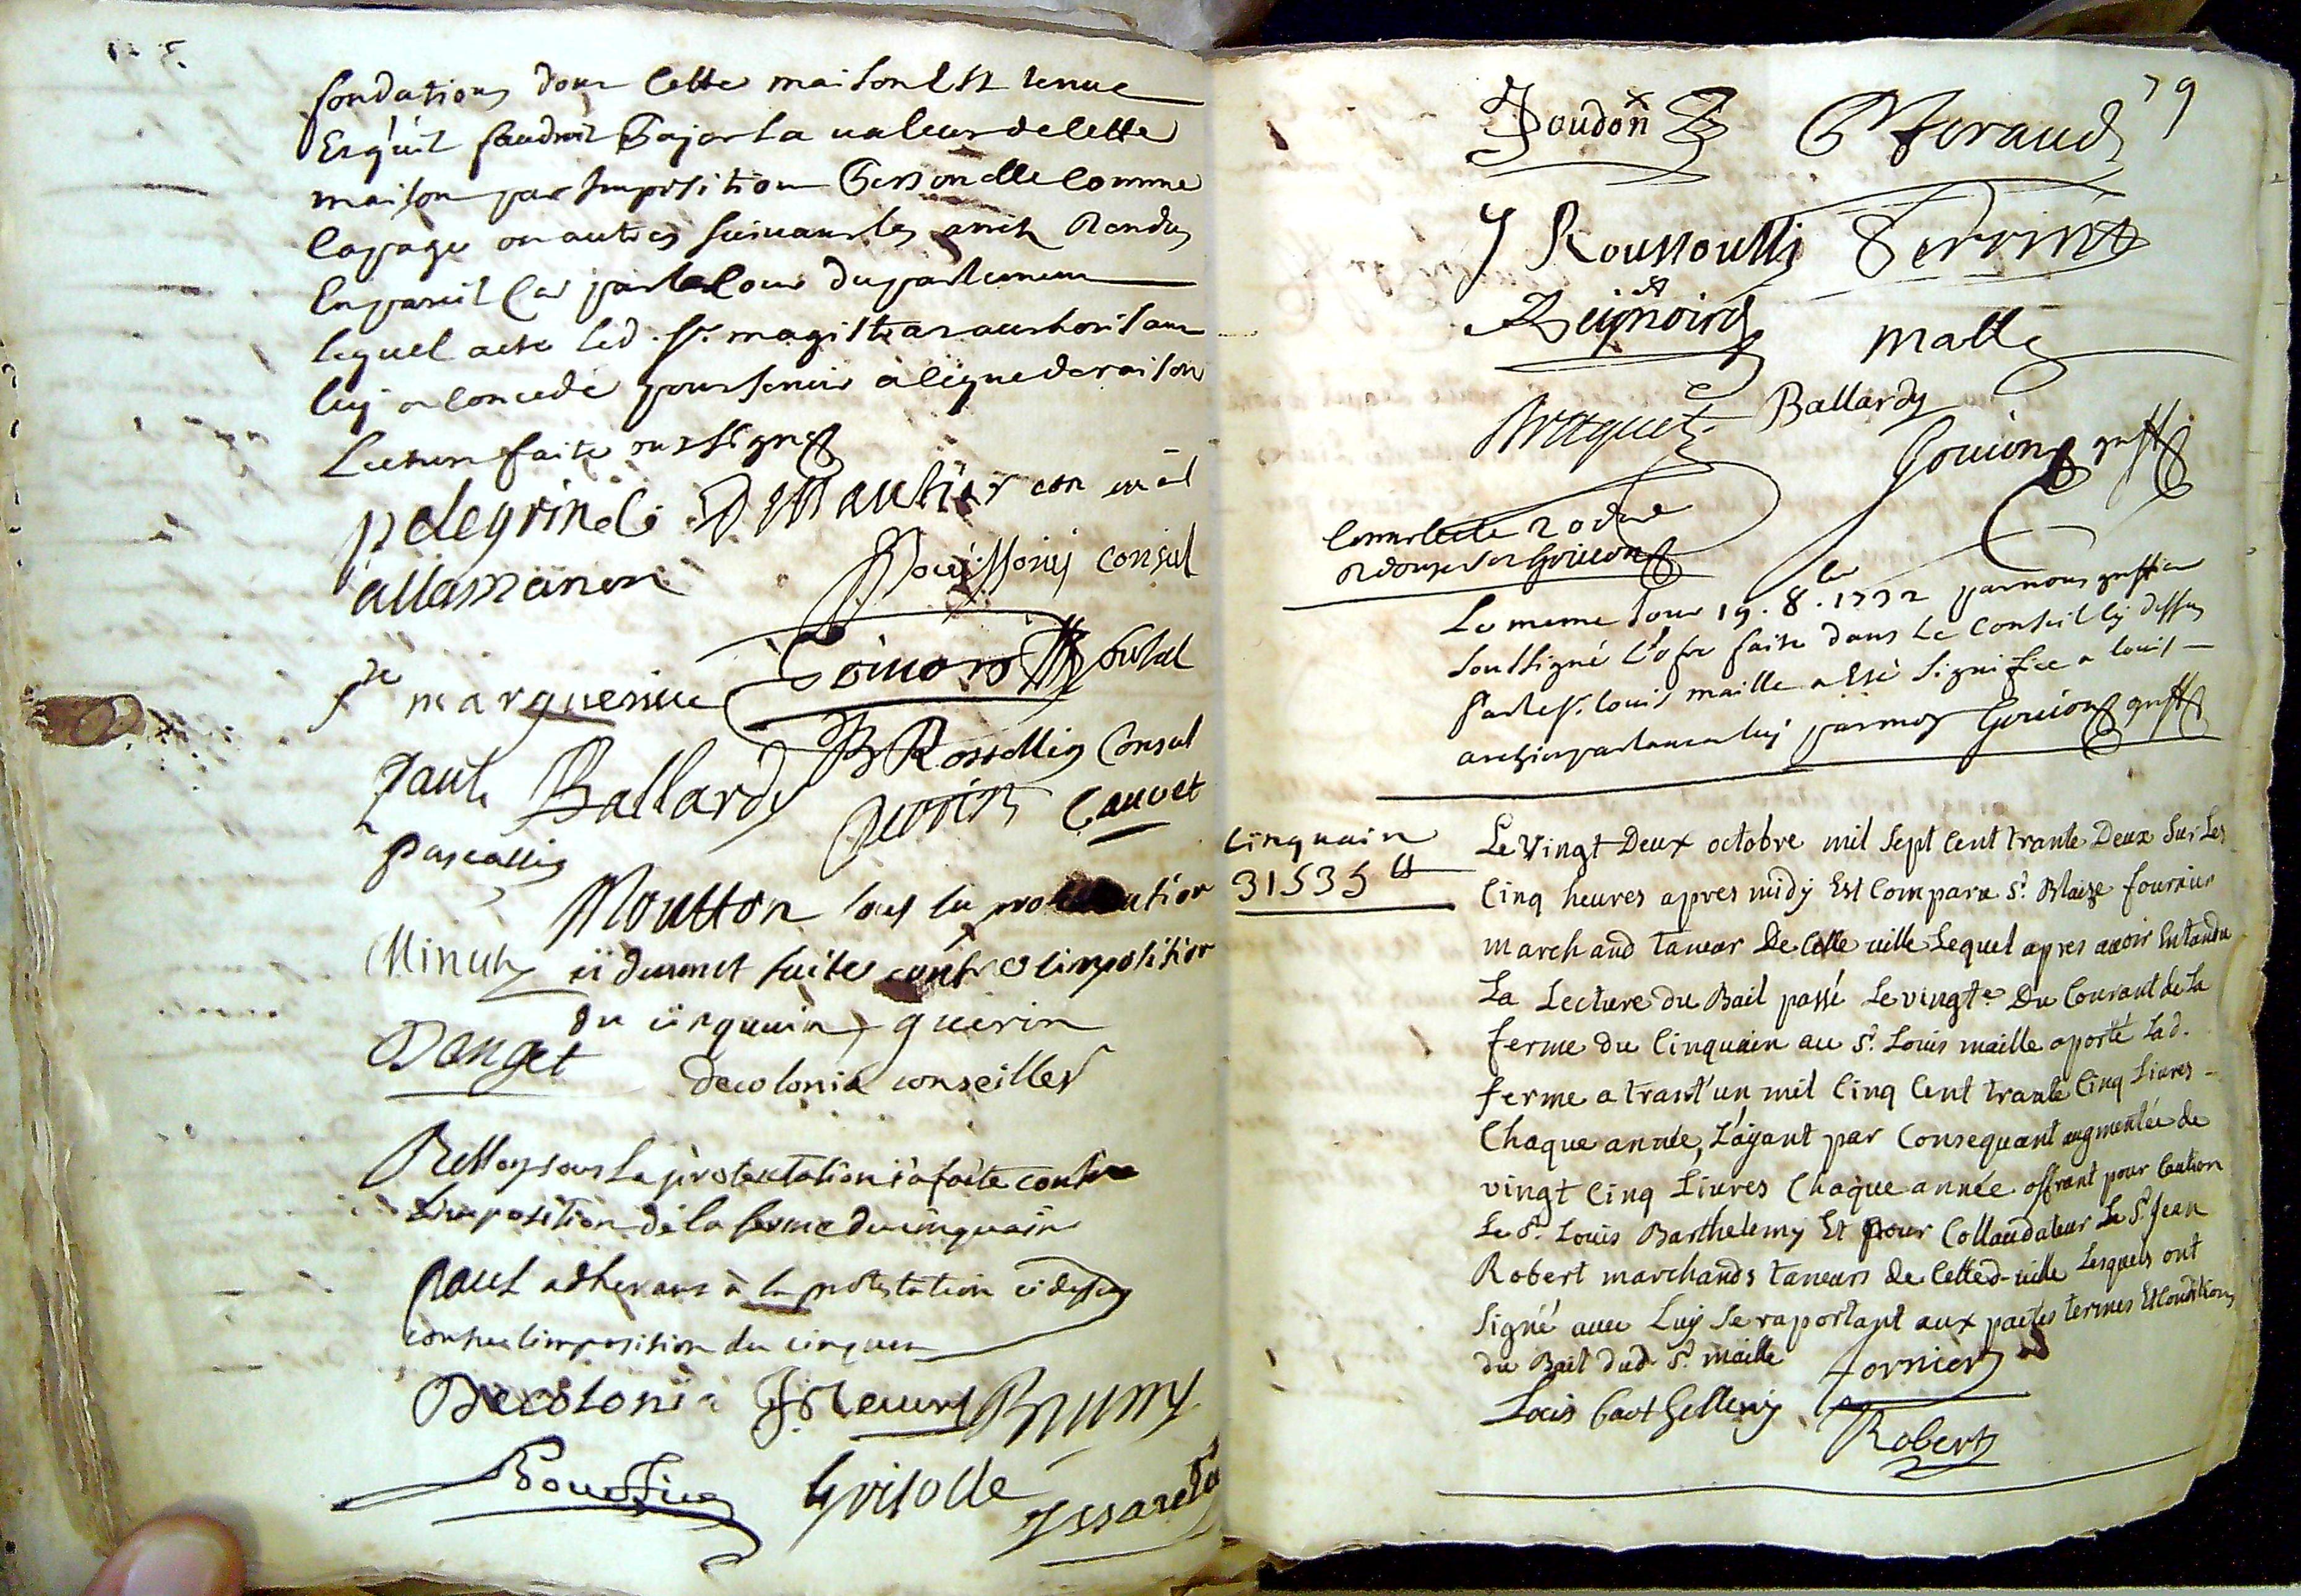 fondations dont cette maison est tenue
Et qu'il faudroit Pajer la ualeur de cette
maison par Imposition Personelle comme
capage ou autres suiuant les arrets Rendus
En pareil Cas par la Cour du parlement
lequel acte led. sr. magistrat authorisant
luy a concedé pour seruir a ce que de raison
Lecture faite ont signé
pelegrin de D. Gautier con
allamanon
Bouissony consul
Goiuon
st marguerite
B Rossollin Consul
Ballardy
perrin Cauvet
pascallis
Moutton sous la protestation
Minuty ci deuant faite contre limposition
du cinquain guerin
Danget decolonia conseiller
Relloz sous la protextation ia faite contre
Limposition de la ferme du cinquain
paul adherant à la protestation ci dessus
contre limposition du cinquen
Decolonia J. Fleury Brumy
Grisolle
79
Joudon G Meraud
J Roussoulli Perrint
A
Reynoird
malle
Braquet Ballardy
Gouion greff
Controllé le 20 8bre
Gouion
Le meme Jour 19. 8.bre 1732 par nous greffier
soussigné L'ofre faite dans Le Conseil Cy dessus
par le sr. louis maille a Eté signifiée a louis
parlant a luy par moy Gouion greff
Cinquain
31535 tt
Le Vingt Deux octobre mil sept Cent trante Deux sur Les
Cinq heures apres midy Est Comparu sr. Blaize fournier
marchand taneur De Cette uille Lequel apres auoir Entandu
La Lecture du Bail passé Le vingte Du Courant de La
ferme du Cinquain au sr. Louis maille a porté Lad.
ferme a trant'un mil Cinq Cent trante Cinq Liures
Chaque année, L'ayant par Consequant augmentée de
vingt Cinq Liures Chaque année offrant pour Caution
Le sr. Louis Barthelemy Et pour Collaudateur Le sr. Jean
Robert marchands taneurs de Cetted. uille Lesquels ont
signé auec Luy se raportant aux pactes termes Et Conditions
du Bail dud. sr. maille fornier
Louis barthellemy
Robert